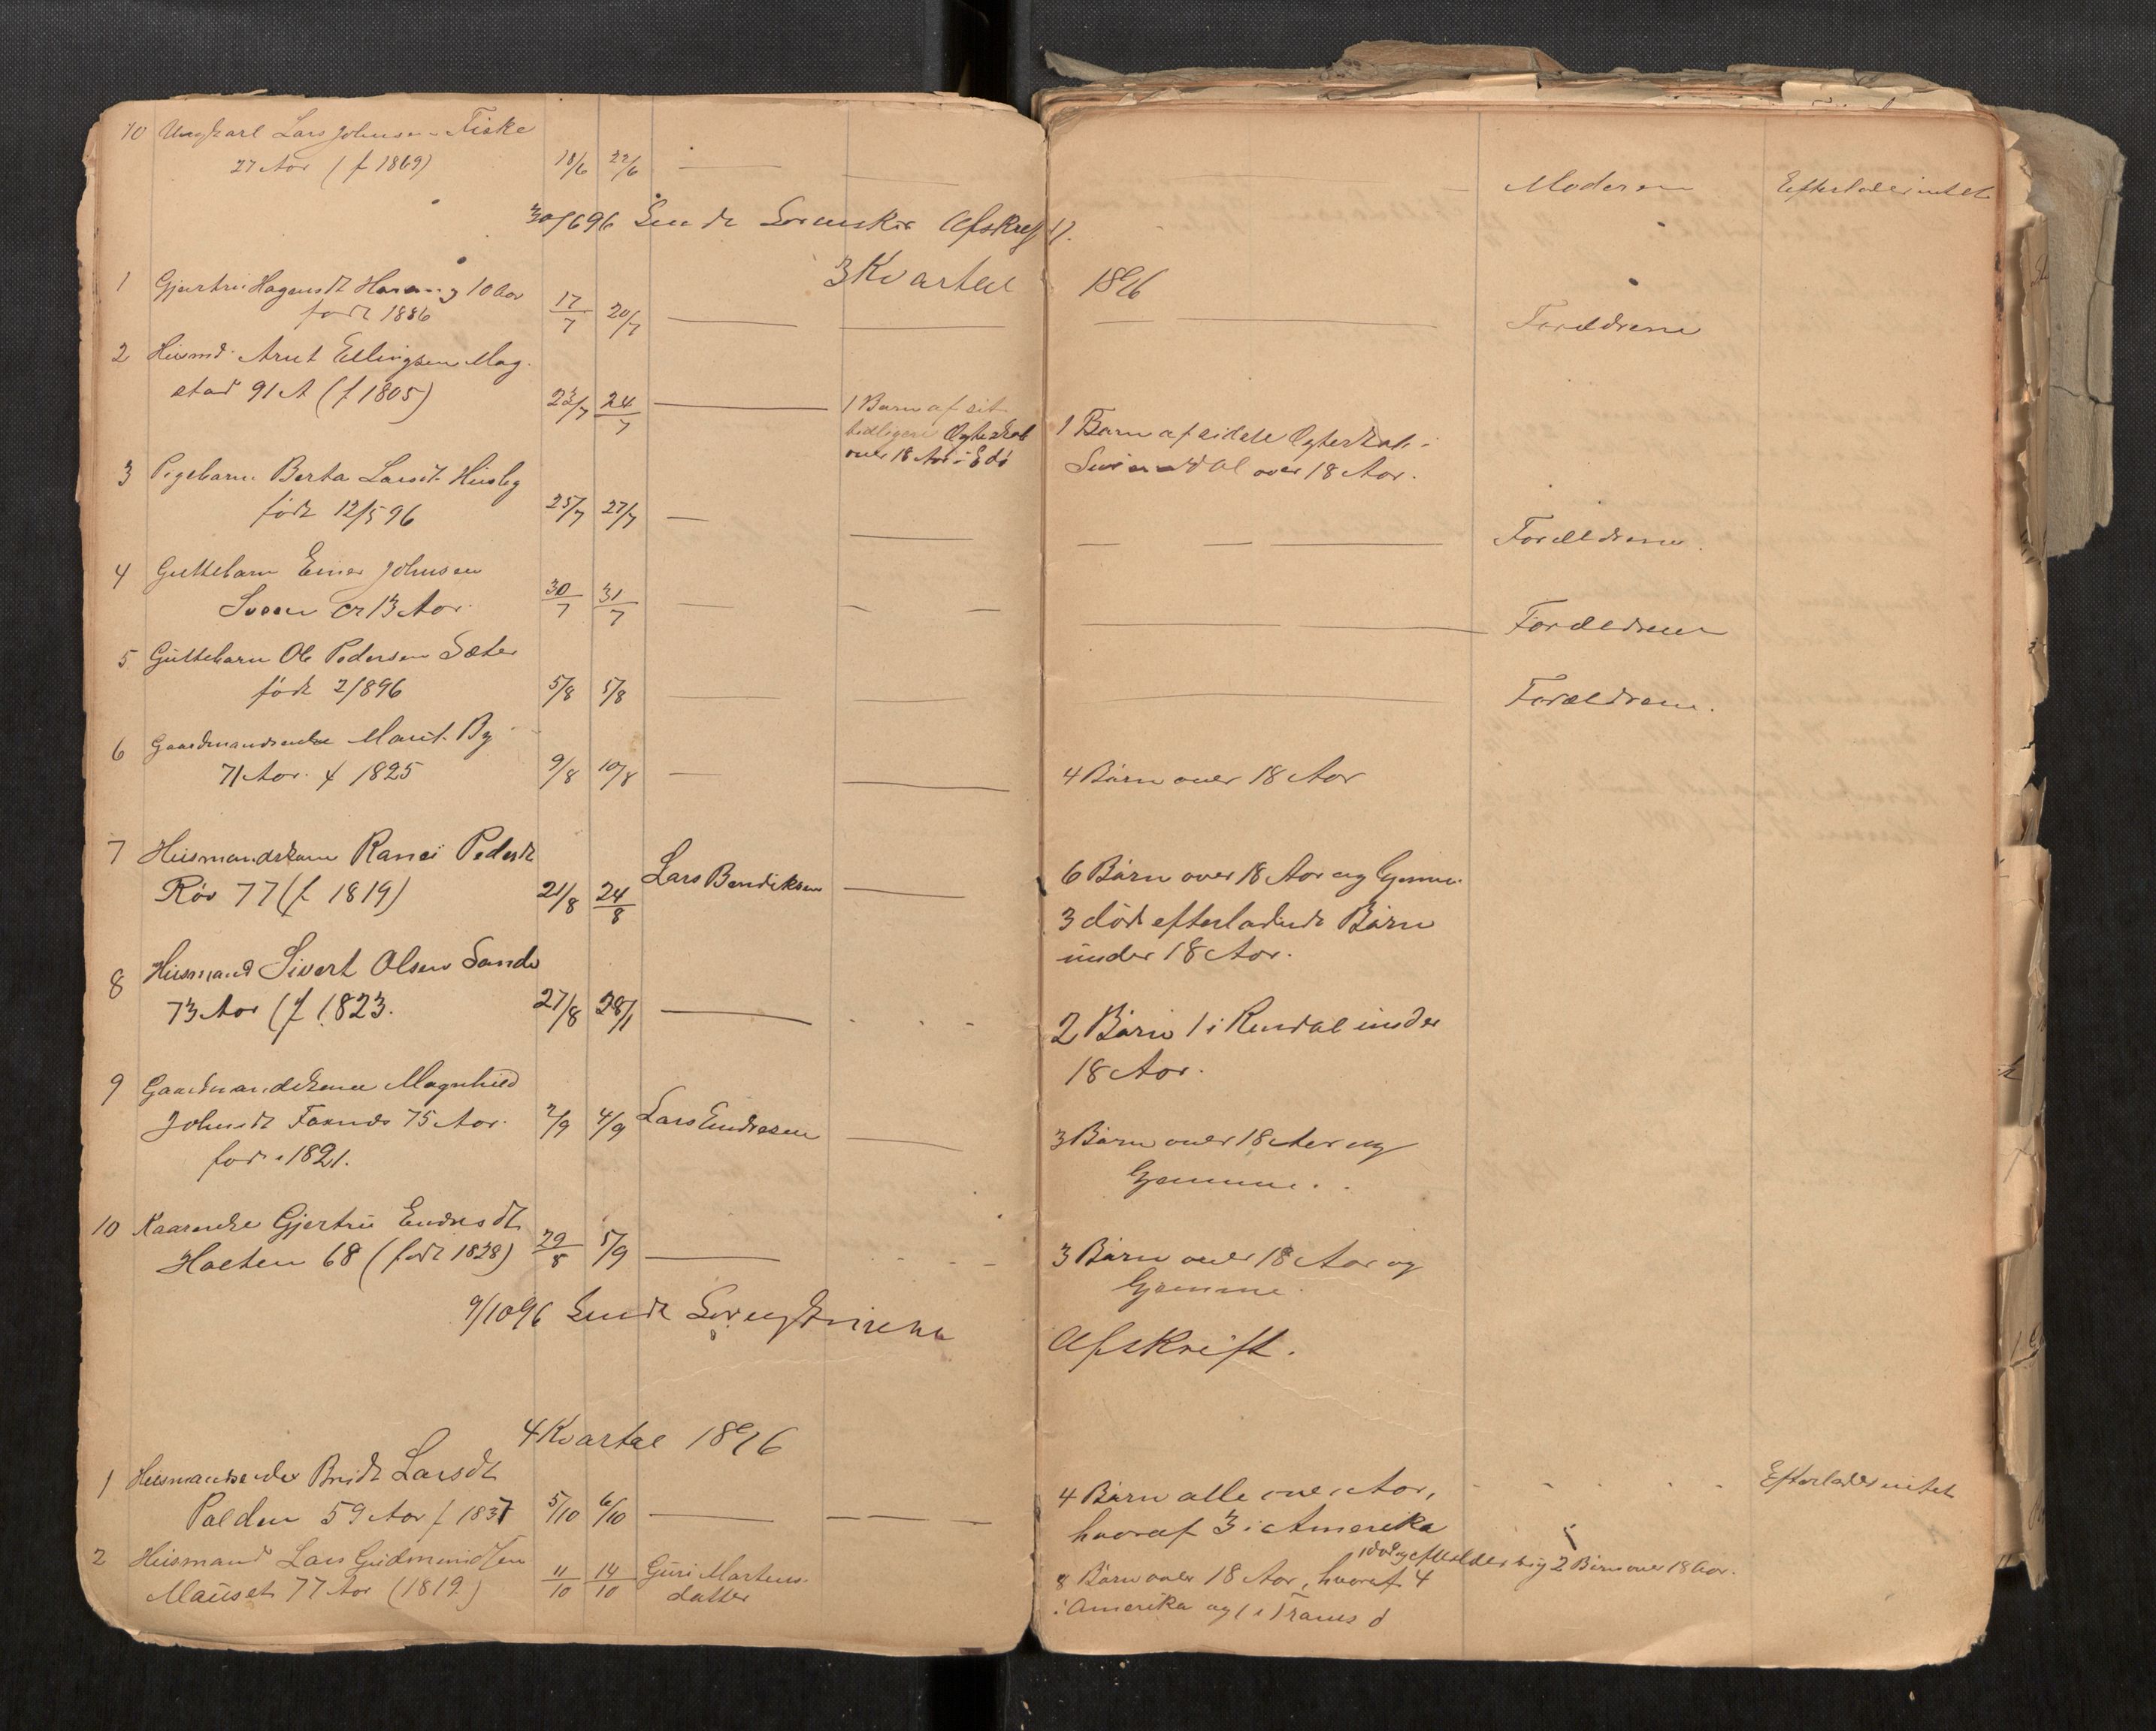 10 Ungkarl Lars Johnsen Fiske
27 Aar (f 1869) 18/6 22/6 Moderen Efterlader intet
30/6 96 Sendt Sorenskr Afskrift.
3 Kvartal 1896
1 Gjertru Hagensdt 10 Aar
født 1886 17/7 20/7 Forældrene
2 Husmd. Arnt Ellingsen Mog
stad 91 A (f 1805) 23/7 24/7 1 Barn af sit
tidligere Ægteskab
over 18 Aar i Edø
1 Barn af sidste Ægteskab i
Surendal over 18 Aar.
3 Pigebarn Berta Larsdt Husby
født 12/5 96 25/7 27/7 Forældrene.
4 Guttebarn Einer Johnsen
13 Aar. 30/7 31/7 Forældrene
5 Guttebarn Ole Pedersen Sæter
født 2/8 96 5/8 5/8 Forældrene.
6 Gaardmandsenke Marit By
71 Aar. f 1825 9/8 10/8 4 Børn over 18 Aar
7 Husmandskone Ranei Pedersdt
Røv 77 (f 1819) 21/8 24/8 Lars Bendiksen
6 Børn over 18 Aar og Gjemme.
3 død efterladende Børn
under 18 Aar.
8 Husmand Sivert Olsen Sande
73 Aar (f 1823. 27/8 28/1
2 Børn 1 i Rendal under
18 Aar.
9 Gaardmandskone Magnhild
Johnsdt 75 Aar.
født 1821. 2/9 4/9 Lars Endresen
3 Børn over 18 Aar og
Gjemme.
10 Kaarenke Gjertru Endresdt
Holten 68 (født 1828) 29/8 5/9
3 Børn over 18 Aar og
Gjemme.
9/10 96 Sendt Sorenskriveren
Afskrift.
4 Kvartal 1896
1 Husmandsenke Brit Larsdt
59 Aar f 1837 5/10 6/10
4 Børn alle over Aar,
hvoraf 3 i Amerika
Efterlader intet
2 Husmand Lars Gudmundsen
Mauset 77 Aar (1819) 11/10 14/10 Guri Martens
datter
1 død og efterlader sig 2 Børn over 18 Aar.
8 Børn over 18 Aar, hvoraf 4
i Amerika og 1 i